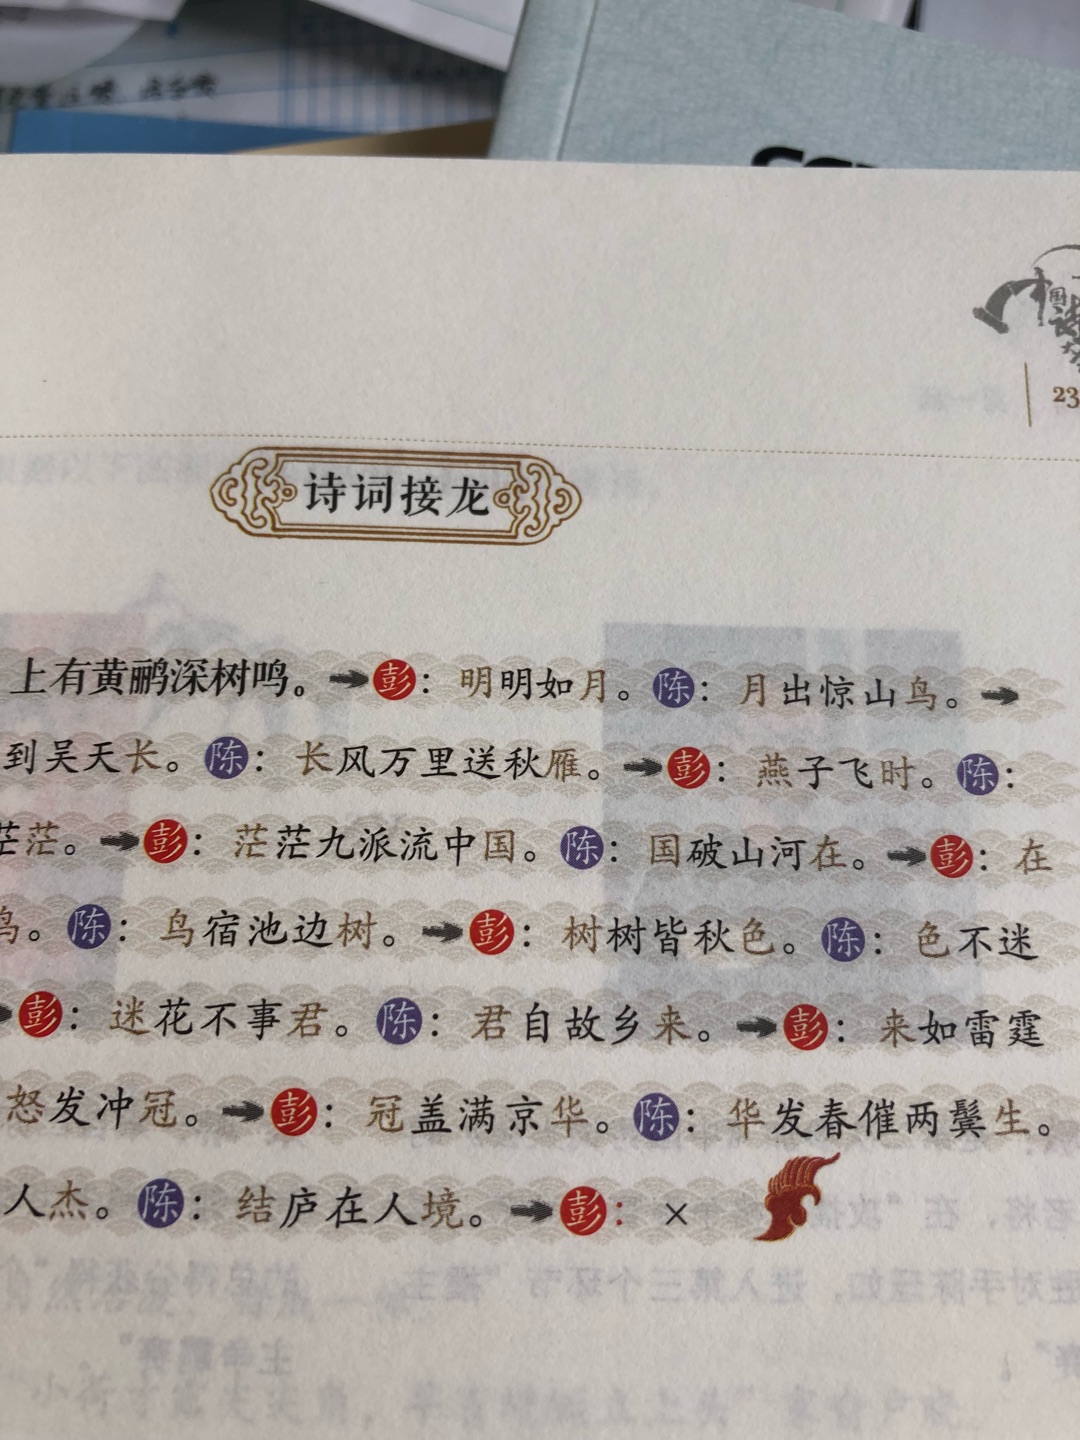 中国诗
23
诗词接龙
上有黄鹂深树鸣。➡彭：明明如月。陈：月出惊山鸟。➡
到吴天长。陈：长风万里送秋雁。➡彭：燕子飞时。陈：
茫茫。➡彭：茫茫九派流中国。陈：国破山河在。➡彭：在
鸟。陈：鸟宿池边树。➡彭：树树皆秋色。陈：色不迷
➡彭：迷花不事君。陈：君自故乡来。➡彭：来如雷霆
怒发冲冠。➡彭：冠盖满京华。陈：华发春催两鬓生。
人杰。陈：结庐在人境。➡彭：×